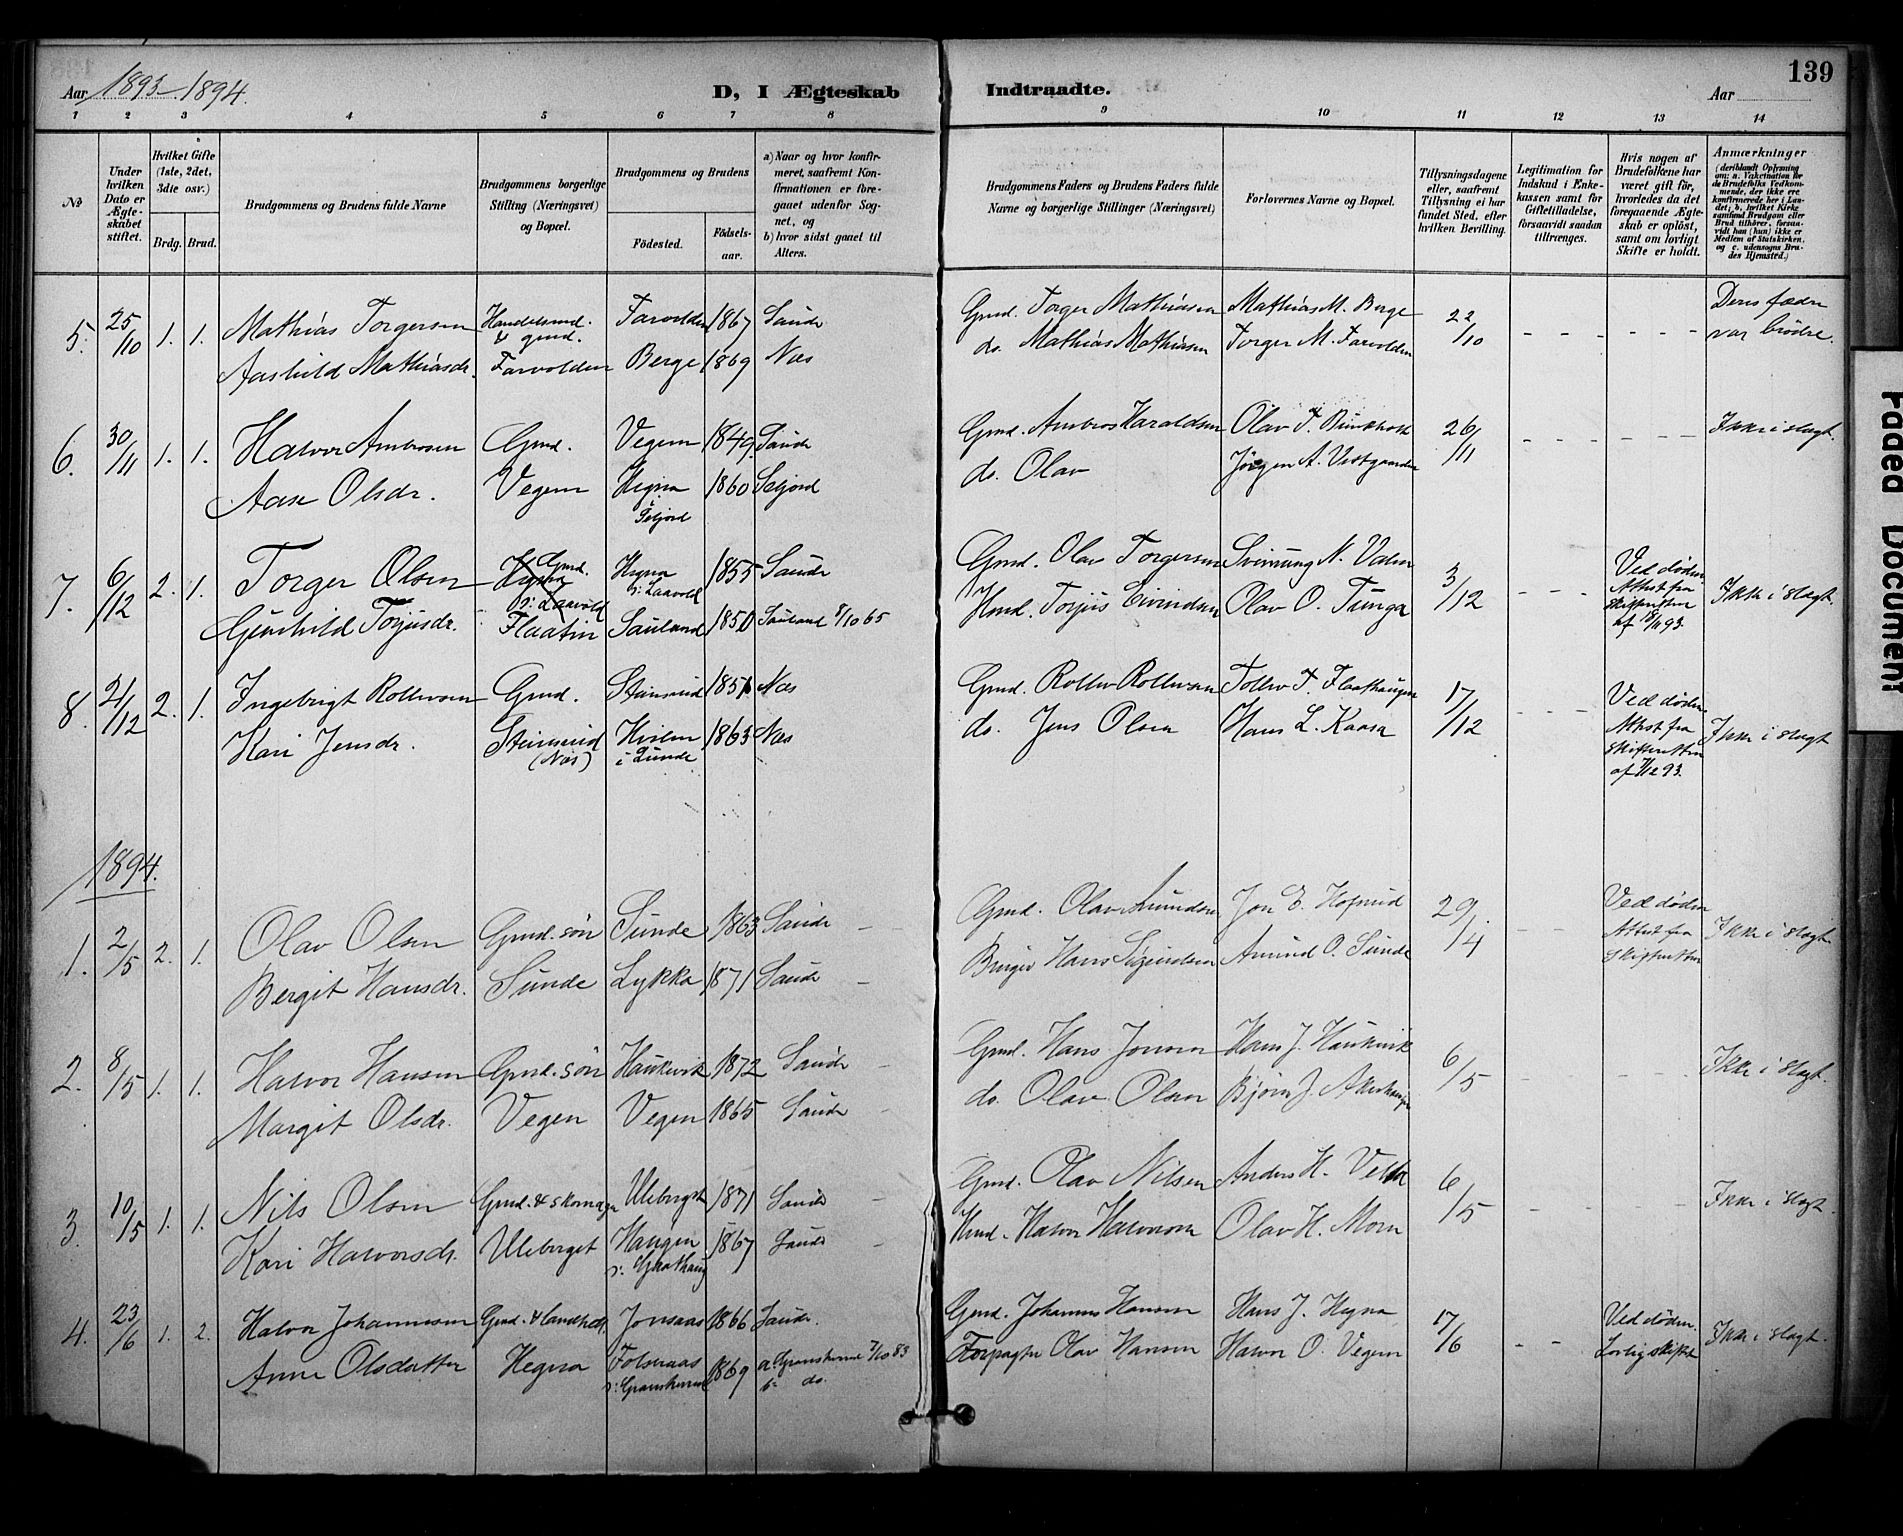 Aar 1893-1894.
D, I Ægteskab
Indtraadte.
139
Aar
1 2 3 4 5 6 7 8
9 10 11 12 13 14
No
Under hvilken Dato er Ægteskabet stiftet.
Hvilket Gifte (1ste, 2det, 3die osv.)
Brdg. Brud.
Brudgommens og Brudens fulde Navne
Brudgommens borgerlige Stilling (Næringsvei) og Bopæl.
Brudgommens og Brudens
Fødested.
Fødselsaar.
a) Naar og hvor konfirmeret, saafremt Konfirmationen er foregaaet udenfor Sognet, og
b) hvor sidst gaaet til Alters.
Brudgommens Faders og Brudens Faders fulde Navne og borgerlige Stillinger (Næringsvei)
Forlovernes Navne og Bopæl.
Tillysningsdagene eller, saafremt Tillysning ei har fundet Sted, efter hvilken Bevilling.
Legitimation for Indskud i Enkekassen samt for Giftetilladelse, forsaavidt saadan tiltrænges.
Hvis nogen af Brudefolkene har været gift før, hvorledes da det foregaaende Ægteskab er opløst, samt om lovligt Skifte er holdt.
Anmærkninger
(deriblandt Oplysning om: a. Vakcination for de Brudefolks Vedkommende, der ikke ere konfirmerede her i Landet; b. hvilket Kirkesamfund Brudgom eller Brud tilhører, forsaavidt han (hun) ikke er Medlem af Statskirken, og c. udensogns Brudes Hjemsted.)
5. 25/10 1. 1. Mathias Torgersen Handelsmd. & gmd. Farvolden 1867 Saude Gmd. Torger Mathiasen Mathias M. Berge 22/10 - - - - - - Deres fædre
Aashild Mathiasdr. Farvolden Berge 1869 Næs do. Mathias Mathiasen Torger M. Farvolden var brødre.
6. 30/11 1. 1. Halvor Ambrosen Gmd. Vegen 1849 Saude Gmd. Ambros Haraldsen Olav T. 26/11 - - - - - - Ikke i slegt.
Aase Olsdr. Vegen Hegna Seljord 1860 Seljord do. Olav Jørgen A. Vestgaarden
7. 6/12 2. 1. Torger Olsen Gmd. Hegna 1855 Saude Gmd. Olav Torgersen Sveinung N. Valen 3/12 - - - Ved døden. Ikke i slegt.
Gunhild Torjusdr. Flaatin Sauland 1850 Sauland 8/10 65 Hmd. Torjus Eivindsen Olav O. Tunga Attest fra
skifteretten
af 18/11 93.
8. 21/12 2. 1. Ingebrigt Rollevsen Gmd. Steinsrud 1851 Næs Gmd. Rollev Rollevsen Tollev T. Flaathaugen 17/12 - - - Ved døden. Ikke i slegt
Kari Jensdr. Steinsrud (Næs) Hvilen i Lunde 1863 Næs do. Jens Olsen Hans L. Kaasa Attest fra
skifteretten
af 7/12 93.
1894.
1. 2/5 2. 1. Olav Olsen Gmd. søn Sunde 1863 Saude - Gmd. Olav Amundsen Jon E. Hofsrud 29/4 - - Ved døden Ikke i slegt.
Bergit Hansdr. Sunde Lykka 1871 Saude - Hans Sigurdsen Amund O. Sunde Attest fra
skifteretten
2. 8/5 1. 1. Halvor Hansen Gmd. søn Haukvik 1872 Saude - Gmd. Hans Jonsen Hans J. Haukvik 6/5 - - - - - Ikke i slegt.
Margit Olsdr. Vegen Vegen 1865 Saude do. Olav Olsen Bjørn J.
3. 10/5 1. 1. Nils Olsen Gmd. & skomager Uleberget 1871 Saude - Gmd. Olav Nilsen Anders H. 6/5 - - - - - Ikke i slegt.
Kari Halvorsdr. Uleberget Haugen 1867 Saude - Hmd. Halvor Halvorsen Olav H. Moen
4. 23/6 1. 2. Halvor Johannesen Gmd. & landh. Jonsaas 1866 Saude. Gmd. Johannes Hansen Hans J. Hegna 17/6 - - Ved døden. Ikke i slegt.
Anne Olsdatter Hegna 1869 a. Gransherred 7/10 83 b: do. Forpagter Olav Hansen Halvor O. Vegen Lovlig skiftet
Faded Document